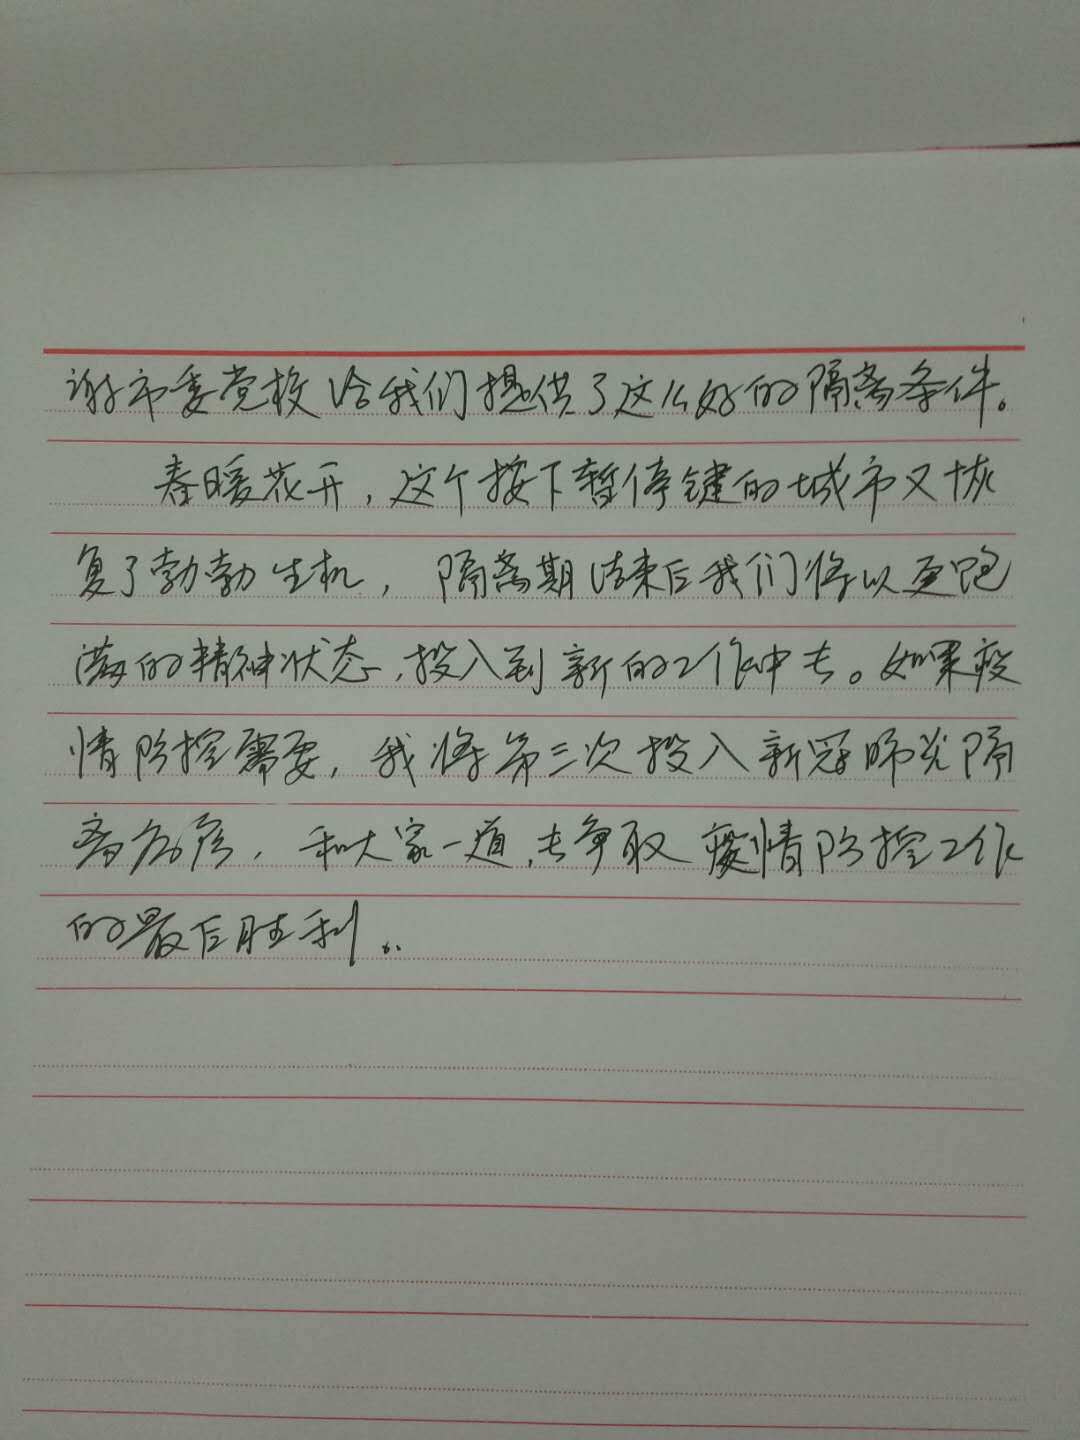 谢市委党校给我们提供了这么好的隔离条件。
春暖花开，这个按下暂停键的城市又恢
复了勃勃生机，隔离期结束后我们将以更饱
满的精神状态，投入到新的工作中去。如果疫
情防控需要，我将第三次投入新冠肺炎隔
离病房，和大家一道，去争取疫情防控工作
的最后胜利。